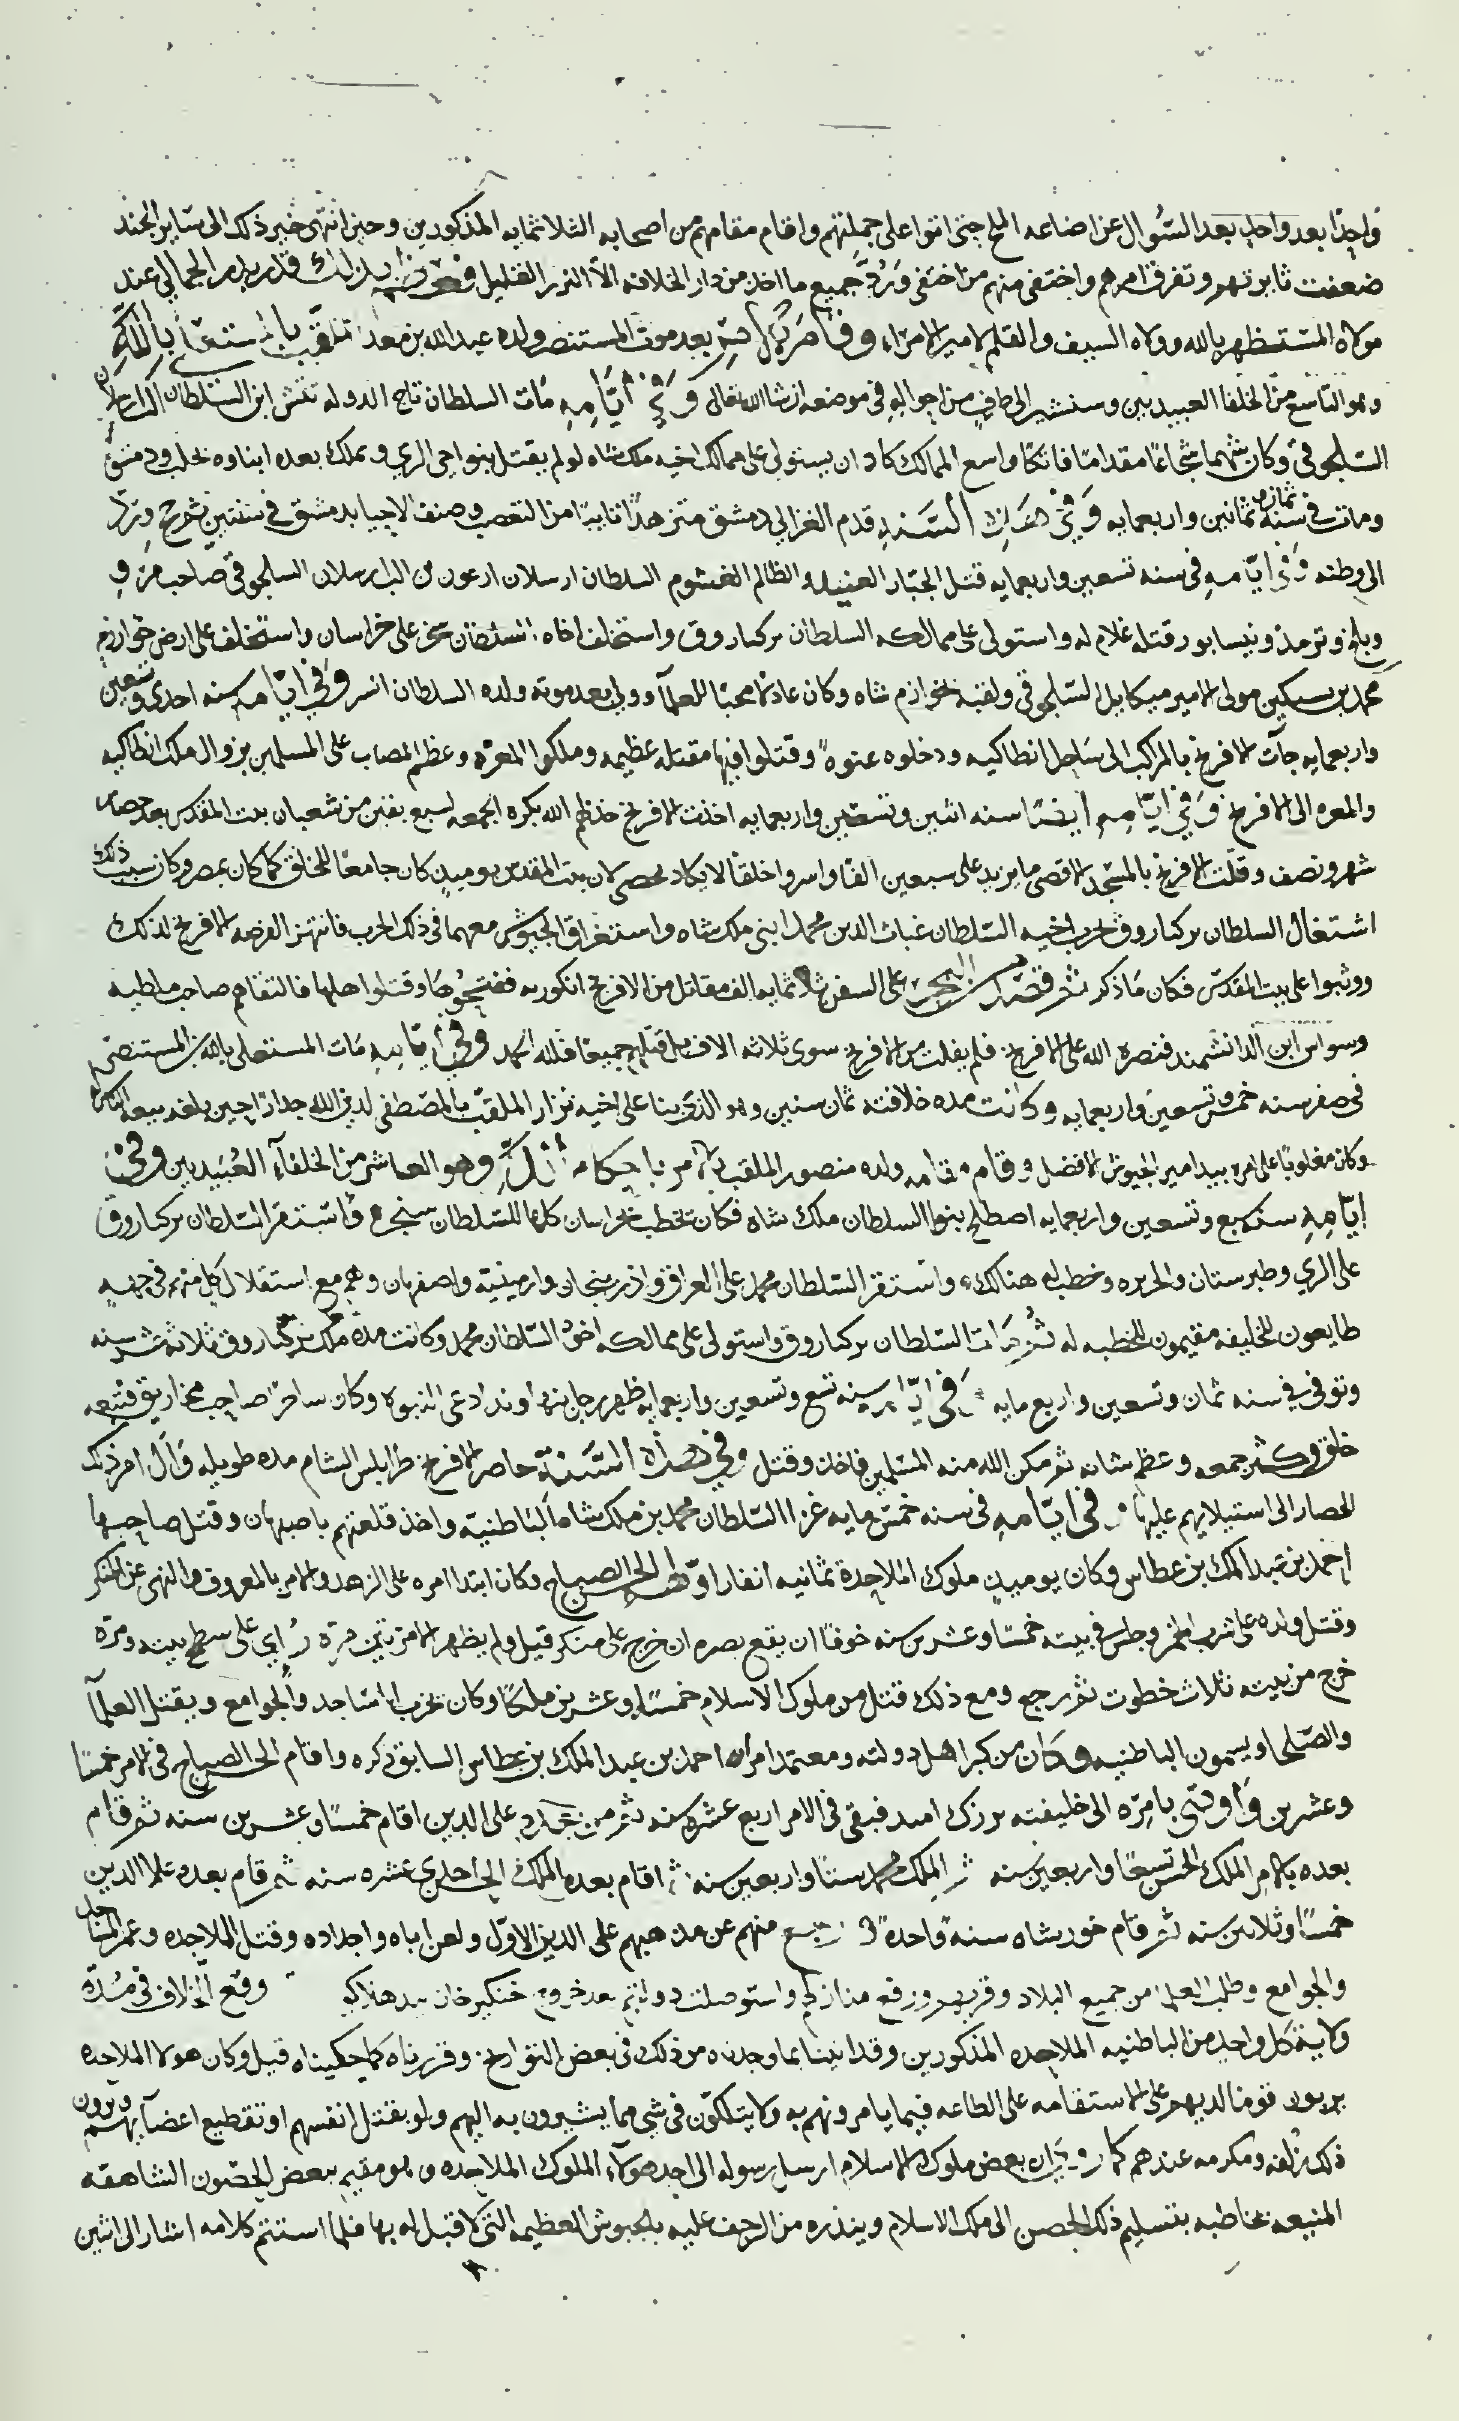 واحدًا بعد واحد بعد السؤال عن اضاعه الملح حتى اتوا على جملتهم واقام مقامهم من اصحابه الثلاثمايه المذكورين وحين انتهى خبر ذلك الى ساير الجند
ضعفت ثايرتهم وتفرق امرهم واختفى منهم من اختفى ورد جميع ما اخذ من دار الخلافه الا النزر القليل بذلك قدر بدر الجمالي عند
مولاه المستظهر بالله وولاه السيف والقلم امير الامراء وقام بعد موت المستنصر ولده عبدالله بن معد تلقب بالمستعلي بالله
وهو التاسع من الخلفا العبيديين وسنشير الى طرف من احواله في موضعه ان شا الله تعالى وفي ايامه مات السلطان تاج الدوله تتش ابن السلطان الب ارسلان
السلجوقي وكان شهما شجاعًا مقدامًا فاتكًا واسع الممالك كاد ان يستولي على ممالك اخيه ملك شاه لو لم يقتل بنواحي الري وتملك بعده ابناوه بحلب ودمشق
ومات في سنة ثمان وثمانين واربعمايه وفي هذه السنه قدم الغزالي دمشق متزهدًا تايبًا من التعصب وصنف الاحيا بدمشق في سنتين ثم حج ورد
الى وطنه وفي ايامه في سنه تسعين واربعمايه قتل الجبار العنيد الظالم الغشوم السلطان ارسلان ارغون بن الب ارسلان السلجوقي صاحب مرو
وبلخ وترمذ ونيسابور قتله غلام له واستولى على ممالكه السلطان بركياروق واستخلف اخاه السلطان سنجر على خراسان واستخلف على ارض خوارزم
محمد بن سبكتين مولى الامير ميكايل السلجوقي ولقبه بخوارزم شاه وكان عادلا محبا للعلما وولي بعد موته ولده السلطان اتسز وفي ايامه سنه احدى وتسعين
واربعمايه جات الافرنج بالمراكب الى ساحل انطاكيه ودخلوه عنوه وقتلوا فيها مقتله عظيمه وملكوا المعره وعظم المصاب على المسلمين بزوال ملك انطاكيه
والمعره الى الافرنج وفي ايامه ايضًا سنه اثنين وتسعين واربعمايه اخذت الافرنج خذلهم الله بكره الجمعه لسبع بقين من شعبان بيت المقدس بعد حصار
شهر ونصف وقتلت الافرنج بالمسجد الاقصى ما يزيد على سبعين الفًا واسروا خلقًا لا يكاد يحصى لان بيت المقدس يوميذ كان جامعًا للخلق كما كان بمصر وكان سبب ذلك
اشتغال السلطان بركياروق بحرب اخيه السلطان غياث الدين محمد ابني ملك شاه واستغراق الجيوش معهما في ذلك الحرب فانتهز الفرصه الافرنج لذلك
ووثبوا على بيت المقدس فكان ما ذكر ثم قصد البحر على السفن ثلاثمايه الف مقاتل من الافرنج انكوريه ففتحوها وقتلوا اهلها فالتقاهم صاحب ملطيه
وسواس ابن الدانشمند فنصره الله على الافرنج فلم يفلت من الافرنج سوى ثلاثه الاف بل قتلهم جميعًا فلله الحمد وفي ايامه مات المستعلي بالله بن المستنصر
في صفر سنه خمس وتسعين واربعمايه وكانت مده خلافته ثمان سنين وهو الذي بنا على اخيه نزار الملقب بالمصطفى لدين الله جدارًا حين بلغه بيعه الناس له
وكان مغلوبًا على امره بيد امير الجيوش الافضل وقام مقامه ولده منصور الملقب بالآمر باحكام الله وهو العاشر من الخلفاء العبيديين وفي
ايامه سنه سبع وتسعين واربعمايه اصطلح بنوا السلطان ملك شاه فكان تخطب خراسان كلها للسلطان سنجر واستقر السلطان بركياروق
على الري وطبرستان والجزيره وخطب له هنالك واستقر السلطان محمد على العراق واذربيجان وارمينيه واصفهان وهم مع استقلال كل منهم في جهته
طايعون للخليفه مقيمون للخطبه له ثم مات السلطان بركياروق واستولى على ممالكه اخوه السلطان محمد وكانت مده ملك بركياروق ثلاثه عشر سنه
وتوفي في سنه ثمان وتسعين واربع مايه وفي ايامه سنه تسع وتسعين واربعمايه ظهر رجل بنهاوند ادعى النبوه وكان ساحرًا صاحب مخاريق فتبعه
خلق وكثر جمعه وعظم شانه ثم مكن الله منه المسلمين فاخذ وقتل وفي هذه السنة حاصر الافرنج طرابلس الشام مده طويله وآل امر ذلك
الحصار الى استيلايهم عليها وفي ايامه في سنه خمس مايه غزا السلطان محمد بن ملك شاه الباطنيه واخذ قلعتهم باصبهان وقتل صاحبها
احمد بن عبد الملك بن عطاس وكان يوميذ ملوك الملاحدة ثمانيه انفار اولهم الحسن الصباح وكان ابتدا امره على الزهد والامر بالمعروف والنهي عن المنكر
وقتل ولده على شرب الخمر وجلس في بيته خمسًا وعشرين سنه خوفًا ان يقع بصره ان خرج على منكر قيل ولم يظهر الا مرتين مرة رايي على سطح بيته ومره
خرج من بيته ثلاث خطوت ثم رجع ومع ذلك قتل من ملوك الاسلام خمسًا وعشرين ملكًا وكان يخرب المساجد والجوامع ويقتل العلما
والصلحا ويسمون الباطنيه وكان من كبرا اهل دولته ومعتمد امراه احمد بن عبد الملك بن عطاس السابق ذكره واقام الحسن الصباح في الامر خمسًا
وعشرين واوصى بامره الى خليفته برزك اميد فبقي في الامر اربع عشره سنه ثم محمد على الدين اقام خمسًا وعشرين سنه ثم قام
بعده بالامر الملك الحسن تسعًا واربعين سنه ثم الملك محمد ستًا واربعين سنه ثم اقام بعده الملك احدى عشره سنه ثم قام بعده علا الدين
خمسًا وثلاثين سنه ثم قام خورشاه سنه واحده رجع منهم عن مذهبهم على الدين الاول ولعن اباه واجداده وقتل الملاحده وعمر المساجد
والجوامع وطلب العلما من جميع البلاد وقربهم ورفع منازلهم واستوصلت دولتهم بعد خروج جنكيز خان بيد هلاكو وقع الخلاف في مدة
ولاية كل واحد من الباطنيه الملاحده المذكورين وقد اتينا بما وجدناه من ذلك في بعض التواريخ وقررناه كما حكيناه قبل وكان هولا الملاحده
يربون قومًا لديهم على الاستقامه على الطاعه فيما يامرونهم به ولا يتلكون في شي مما يشيرون به اليهم ولو بقتل انفسهم او تقطيع اعضايهم ويرون
ذلك زلفه ومكرمه عندهم كما روي ان بعض ملوك الاسلام ارسل رسوله الى احد هولاء الملوك الملاحده وهو مقيم ببعض الحصون الشاهقه
المنيعه يخاطبه بتسليم ذلك الحصن الى ملك الاسلام وينذره من الزحف عليه بالجيوش العظيمه التي لا قبل له بها فلما استتم كلامه اشار الى اثنين